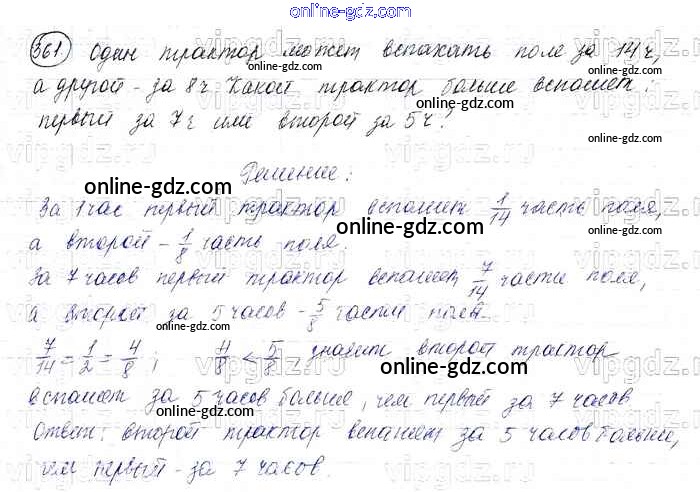 online-gdz.com
361. Один трактор может вспахать поле за 14 ч,
а другой - за 8 ч. Какой трактор больше вспашет:
online-gdz.com
первый за 7 ч или второй за 5 ч?
online-gdz.com
Решение:
online-gdz.com
За 1 час первый трактор вспашет 1/14 часть поля,
а второй - 1/8 часть поля.
online-gdz.com
За 7 часов первый трактор вспашет 7/14 части поля,
online-gdz.com
а второй за 5 часов - 5/8 части поля.
online-gdz.com
7/14 = 1/2 = 4/8; 4/8 < 5/8, значит второй трактор
вспашет за 5 часов больше, чем первый за 7 часов
online-gdz.com
Ответ: второй трактор вспашет за 5 часов больше,
чем первый - за 7 часов.
online-gdz.com